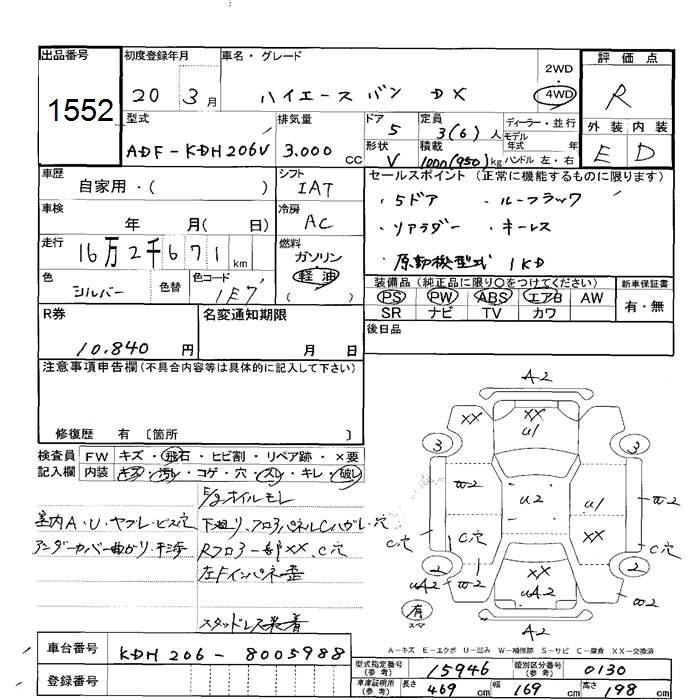 出品番号
1552
初度登録年月
20 3月
車名・グレード
ハイエース バン DX
2WD
4WD
評価点
R
外装 内装
E D
型式
ADF-KDH206V
排気量
3.000 CC
ドア
5
形状
V
定員
3(6)人
積載
1000(950)kg
ディーラー・並行
モデル
年式 年
ハンドル 左・右
車歴
自家用・( )
シフト
IAT
車検
年 月( 日)
冷房
AC
走行
16万2千671km
燃料
ガソリン
軽油
( )
色
シルバー
色替
色コード
1E7
セールスポイント(正常に機能するものに限ります)
・5ドア ・ルーフラック
・リアラダー ・キーレス
・原動機型式 1KD
装備品(純正品に限り○をつけてください)
PS PW ABS エアB AW
SR ナビ TV カワ
新車保証書
有・無
後日品
R券
10.840 円
名変通知期限
月 日
注意事項申告欄(不具合内容等は具体的に記入して下さい)
修復歴 有 〔箇所 〕
検査員
記入欄
FW キズ・飛石・ヒビ割・リペア跡・×要
内装 キズ・汚レ・コゲ・穴・スレ・キレ・破レ
E/gオイルモレ
室内A・U・ヤブレ・ビス穴
下廻り、フロアパネルCハガレ・穴
アンダーカバー曲がり・キズ
Rフロアー部XX、C穴
左Fインパネ歪
スタッドレス装着
A2
XX
XX
U1
3
3
W2
U2
U1
W2
XX
C穴
C穴
2
2
UA2
W2
XX
UA2
W2
有
スペア
A2
A-キズ E-エクボ U-凹み W-補修跡 S-サビ C-腐食 XX-交換済
車台番号
KDH 206 - 8005988
登録番号
型式指定番号
(参考)
15946
類別区分番号
(参考)
0130
車庫証明用
(参考)
長さ 469 cm 幅 169 cm 高さ 198 cm